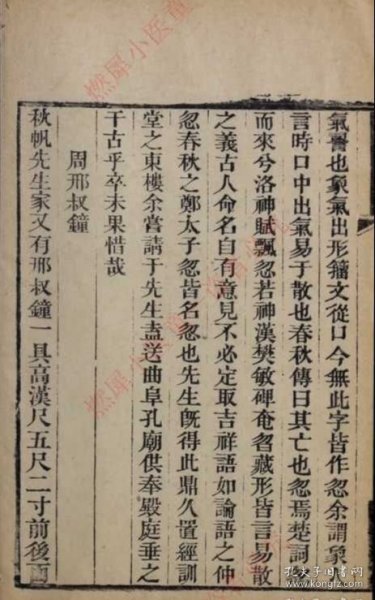 氣𣅜也象氣出形籀文从口今無此字皆作忽余謂象
言時口中出氣易于散也春秋傳曰其亡也忽焉楚詞
而來兮洛神賦飄忽若神漢樊敏碑奄曶藏形皆言易散
之義古人命名自有意見不必定取吉祥語如論語之仲
忽春秋之鄭太子忽皆名忽也先生旣得此鼎久置經訓
堂之東樓余嘗請于先生盍送曲阜孔廟供奉毀庭垂之
千古乎卒未果惜哉
周邢叔鐘
秋帆先生家又有邢叔鐘一具高漢尺五尺二寸前後兩
燃犀小医童
孔夫子旧书网